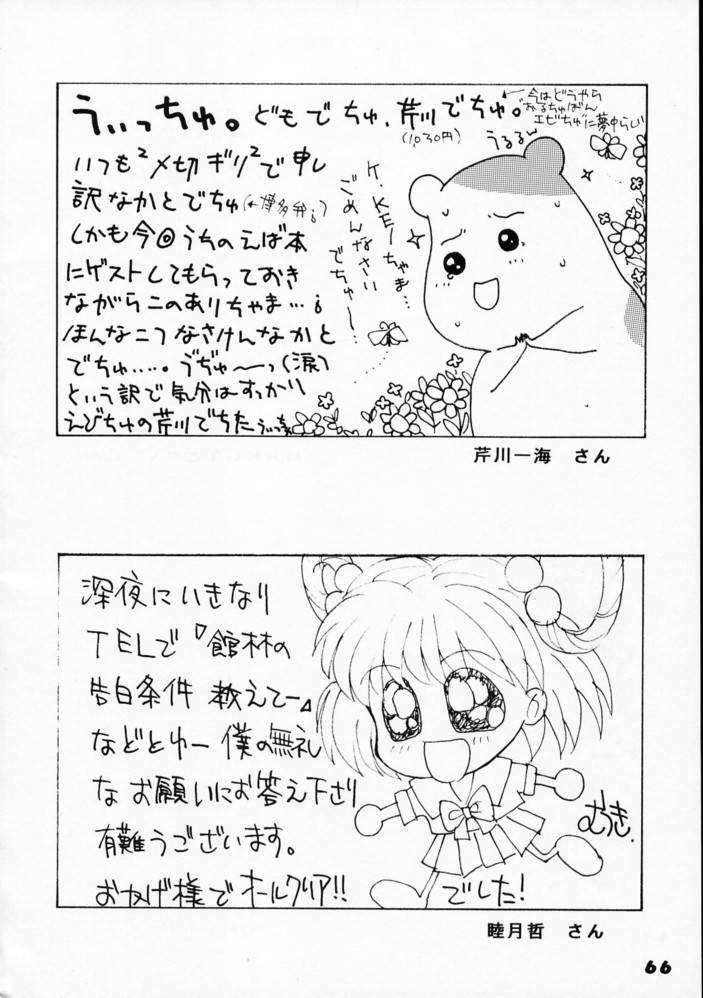 うぃっちゅ。どもでちゅ、芹川でちゅ。
(1,030円)
←今はどうやら
おるちゅばん
エビちゅに夢中らしい
うるるん
いつも²〆切ギリ²で申し
訳なかとでちゅ(←博多弁¿)
しかも今回うちのえば本
にゲストしてもらっておき
ながらこのありちゃま…¿
ほんなこつなさけんなかと
でちゅ…。うぢゅ〜っ(涙)
という訳で気分はすっかり
えびちゅの芹川でちた
K.KEIちゃま…
ごめんなさい
でちゅ〜…
芹川一海 さん
深夜にいきなり
TELで「館林の
告白条件 教えてー」
などとゆー僕の無礼
なお願いにお答え下さり
有難うございます。
おかげ様でオールクリア!!でした!
むつき.
睦月哲 さん
66